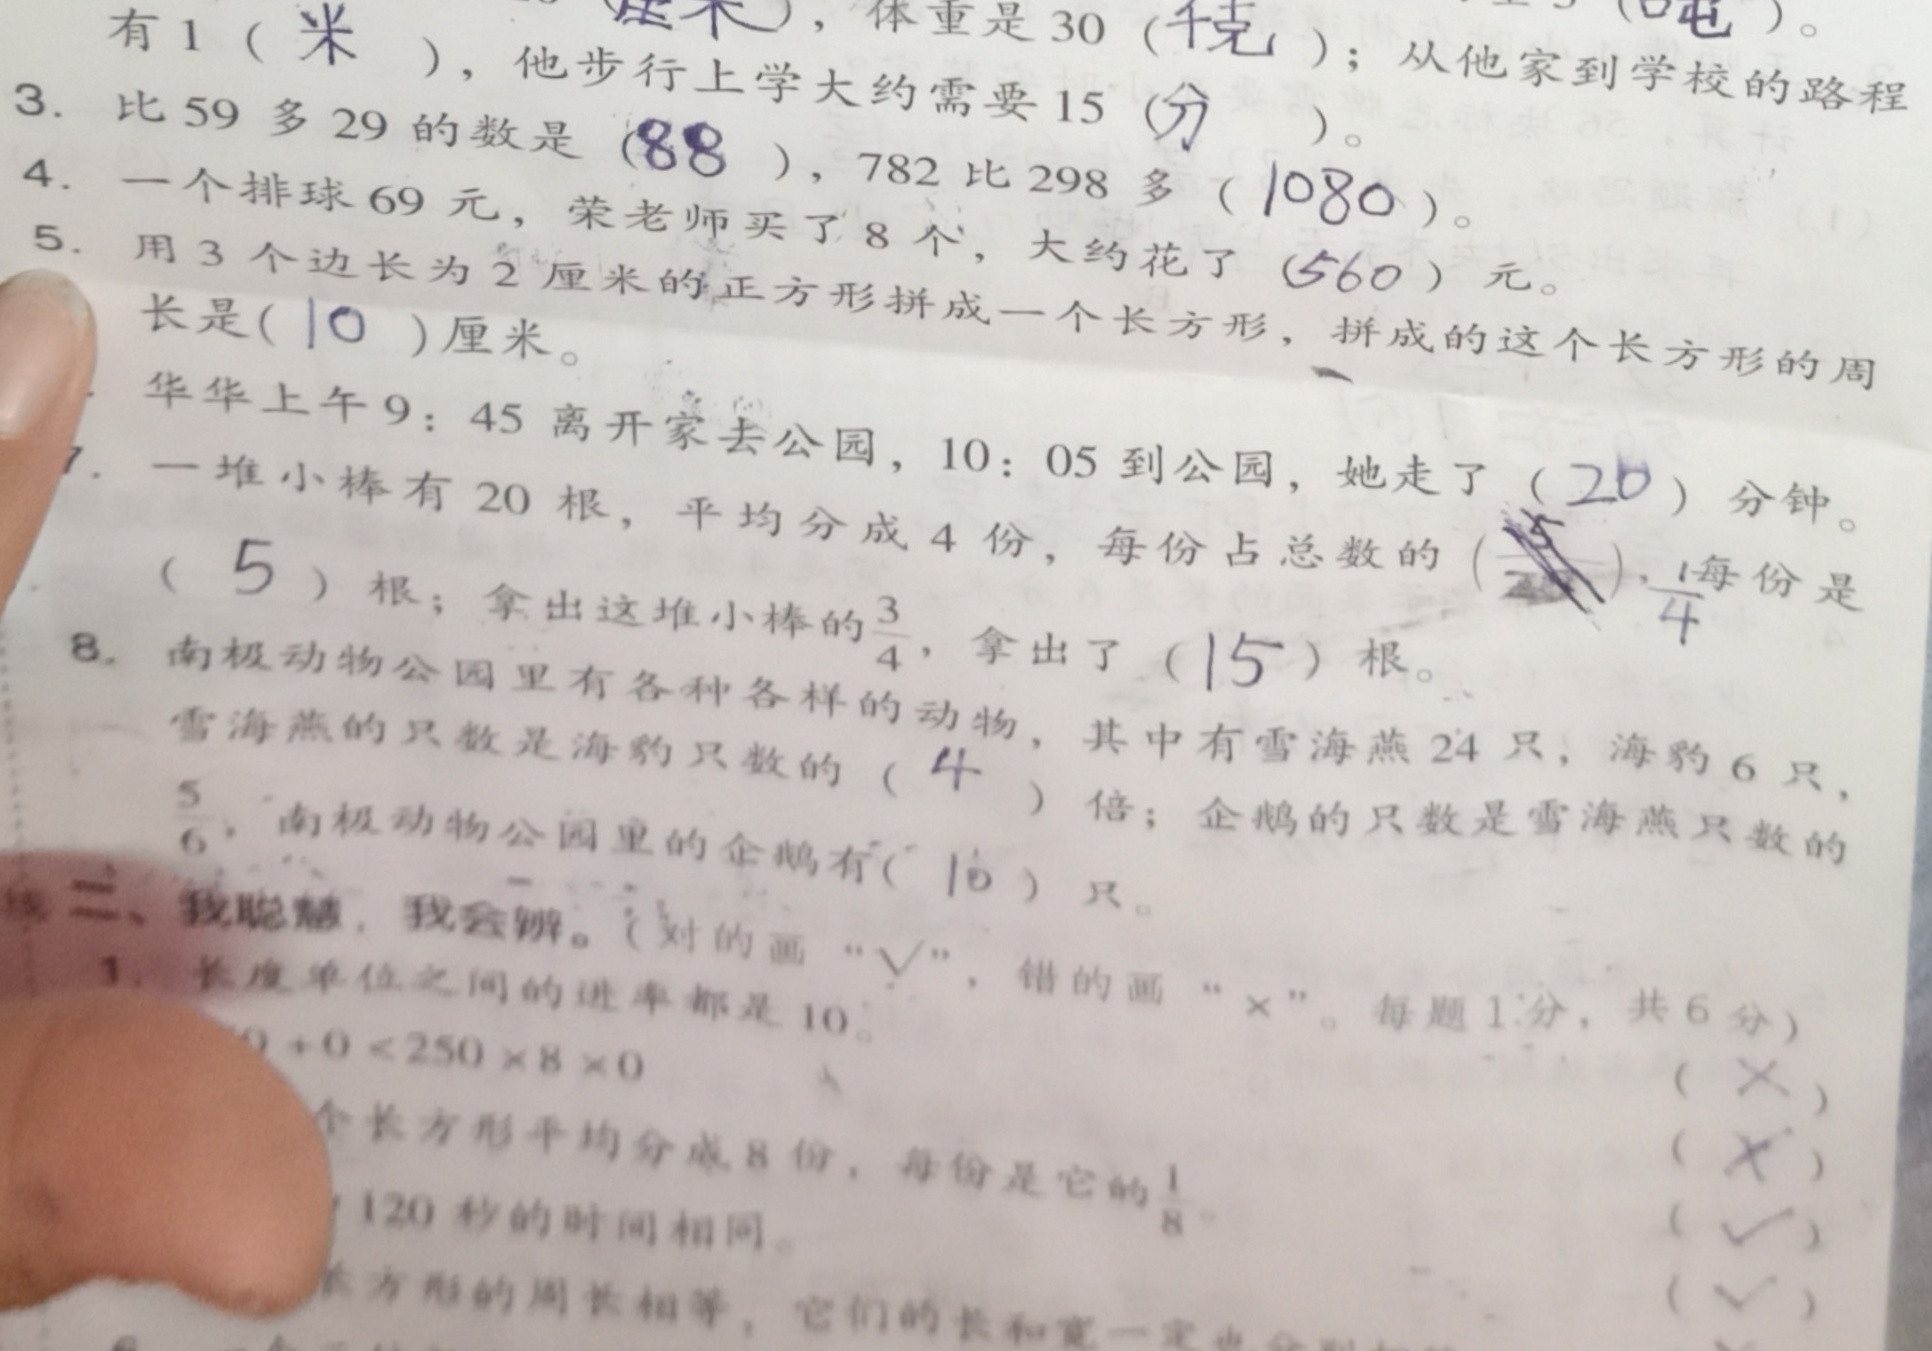 厘米），体重是 30（千克）；从他家到学校的路程
有 1（米），他步行上学大约需要 15（分）。
3. 比 59 多 29 的数是（88），782 比 298 多（1080）。
4. 一个排球 69 元，荣老师买了 8 个，大约花了（560）元。
5. 用 3 个边长为 2 厘米的正方形拼成一个长方形，拼成的这个长方形的周
长是（10）厘米。
华华上午 9：45 离开家去公园，10：05 到公园，她走了（20）分钟。
7. 一堆小棒有 20 根，平均分成 4 份，每份占总数的（），1/4 每份是
（5）根；拿出这堆小棒的 3/4，拿出了（15）根。
8. 南极动物公园里有各种各样的动物，其中有雪海燕 24 只，海豹 6 只，
雪海燕的只数是海豹只数的（4）倍；企鹅的只数是雪海燕只数的
5/6，南极动物公园里的企鹅有（10）只。
二、我聪慧，我会辨。（对的画“√”，错的画“×”。每题 1 分，共 6 分）
1. 长度单位之间的进率都是 10。（×）
0 + 0 < 250 × 8 × 0（×）
个长方形平均分成 8 份，每份是它的 1/8。（√）
120 秒的时间相同。（√）
长方形的周长相等，它们的长和宽一定也分别